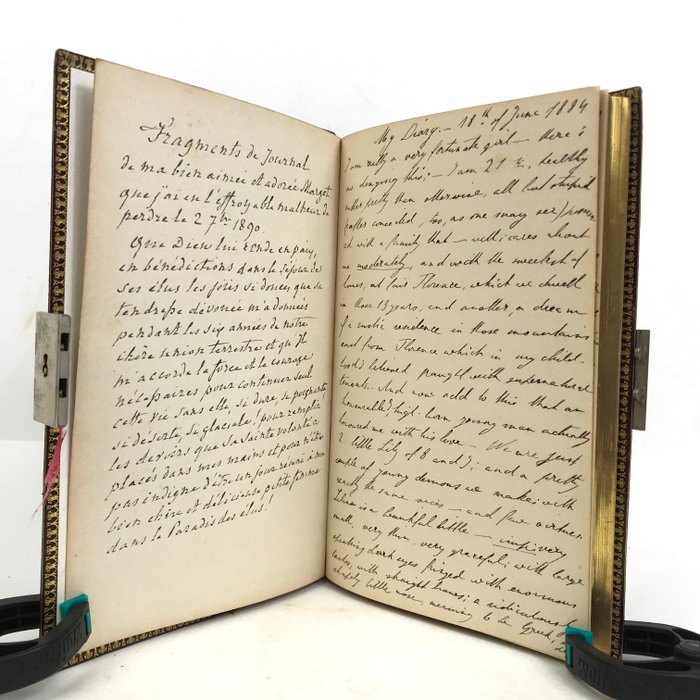 Fragments de Journal
de ma bien aimée et adorée Margot
que j'ai eu l'effroyable malheur de
perdre le 2 7bre 1890.
Que Dieu lui rende en paix,
en bénédictions dans le séjour de
ses élus les joies si douces que sa
tendresse dévouée m'a données
pendant les six années de notre
chère union terrestre et qu'Il
m'accorde la force et le courage
nécessaires pour continuer seul
cette vie sans elle, si dure, si poignante
si déserte, si glaciale! pour remplir
les devoirs que sa sainte volonté a
placés dans mes mains et pour n'être
pas indigne d'être un jour réuni à ma
bien chère et délicieuse petite femme
dans le Paradis des élus!
My Diary. — 18th of June 1884
I am really a very fortunate girl — there's
no denying this; — I am 21 ½, healthy
rather pretty than otherwise, all but stupid
rather conceited, (so, as one may see)
ed with a family that — well; cares about
me moderately, and with the sweetest of
homes, at fair Florence, which we dwell
in those 13 years, and another, a dream
of a rustic residence in those mountains
east from Florence which in my child-
hood I believed fraught with supernatural
And now add to this that an
high-born young man actually
me with his love — We are just
2, little Lily of 8 and I; and a pretty
couple of young demons we make; with
the same vices — and few virtues.
is a beautiful little — imp; very
very thin, very graceful; with large
speaking dark eyes fringed with enormous
lashes, with straight brows; a ridiculously
shapely little nose, meaning to be Greek,